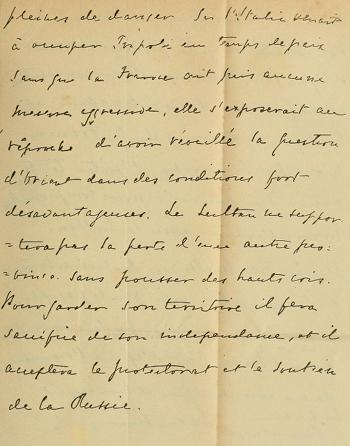 pleines de danger. Si l'Italie venait
à occuper Tripoli en temps de paix
sans que la France ait pris aucune
mesure aggressive, elle s'exposerait au
reproche d'avoir réveillé la question
d'Orient dans des conditions fort
désavantageuses. Le Sultan ne suppor
=tera pas la perte d'une autre pro-
=vince sans pousser des hauts cris.
Pour garder son territoire il fera
sacrifice de son independance, et il
acceptera le protectorat et le soutien
de la Russie.